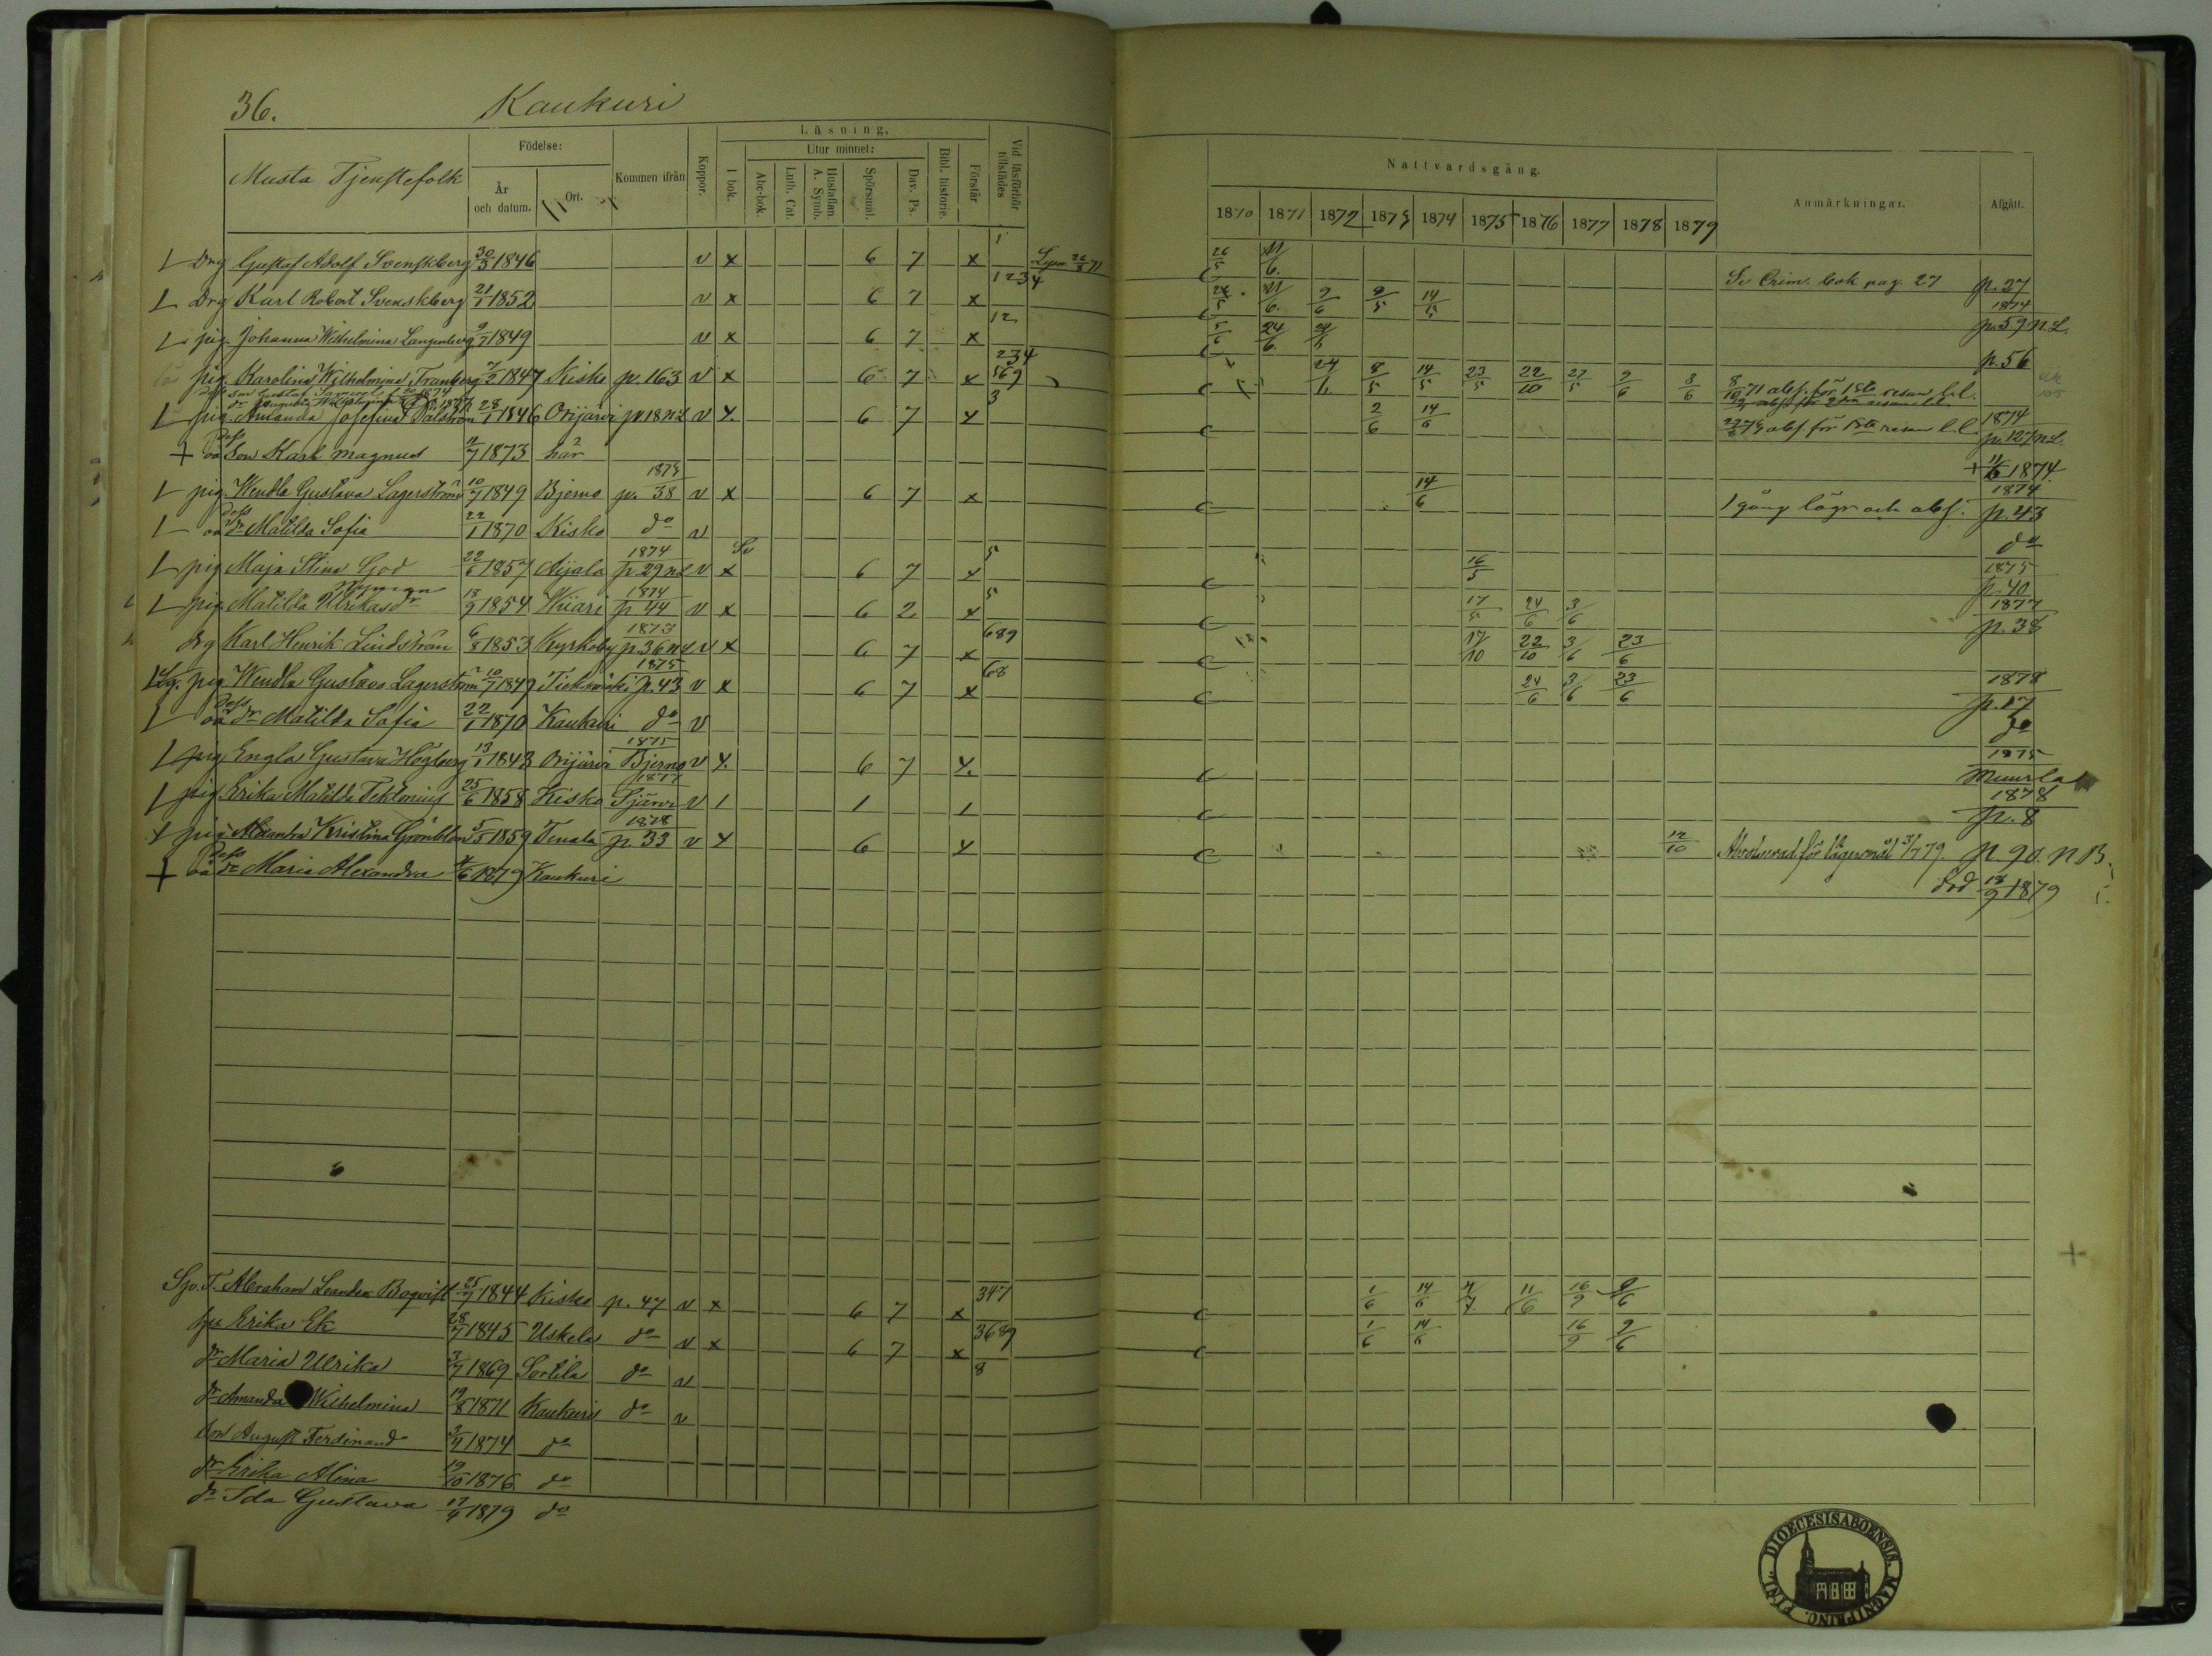 36. Kaukuri
Musta Tjenstefolk
Födelse:
År och datum.
Ort.
Kommen ifrån
Koppor.
Läsning,
I bok.
Utur minnet:
Abc-bok.
Luth. Cat.
Hustaflan. A. Symb.
Spörsmål.
Dav. Ps.
Bibl. historie.
Förstår
Vid läsförhör tillstädes
Nattvardsgång.
1870 1871 1872 1873 1874 1875 1876 1877 1878 1879
Anmärkningar.
Afgått.
Drg Gustaf Adolf Svenskberg 30/3 1846 v x 6 7 x 1 26/5 Se Crim. bok pag. 27 p. 27
Drg Karl Robert Svenskberg 21/1 1852 v x 6 7 x 1234 9/6 9/5 14/5 1874 p. 59 n.L.
pig. Johanna Wilhelmina Langenberg 9/7 1849 v x 6 7 x 12 5/6 24/6 p. 56
pig. Karolina Wilhelmina Tranberg 7/2 1847 Kisko p. 163 v x 6 7 x 234 569 8/5 14/5 23/5 22/10 27/5 2/6 8/6 8/10 71 abs. för 1sta resan l.l.
pig. Amanda Josefina Dalström 28/1 1846 Orijärvi p. 18 n.L v x 6 7 x 3 2/6 14/6 abs. för 1sta resan l.l. 1874 p. 127 n.L.
Dess oä Son Karl Magnus 7/7 1873 här + 11/6 1874
pig. Wendla Gustava Lagerström 10/7 1849 Bjerno p. 38 v x 6 7 x 14/6 1 gång lägr och abs. 1874 p. 43
Dess oä dr Matilda Sofia 22/1 1870 Kisko do v do
pig Maja Stina God 22/6 1857 Aijala 1874 p. 29 n.L v x 6 7 x 5 16/5 1875 p. 40
pig Matilda Ulrikasdr 18/9 1854 Wiiari 1874 p 44 v x 6 2 x 5 17/5 24/6 3/6 1877 p. 38
drg Karl Henrik Lindström 6/8 1853 Kyrkoby 1873 p. 36 n.L v x 6 7 x 689 17/10 22/10 3/6 23/6
pig Wendla Gustava Lagerström 10/7 1849 1875 p. 43 v x 6 7 x 68 24/6 3/6 23/6 1878 p. 17
Dess oä dr Matilda Sofia 22/1 1870 Kaukuri do v do
pig Engla Gustava Högberg 13/1 1843 Orijärvi 1875 Bjerno v x. 6 7 x. 1875 Muurla
pig. Erika Matilda Tektonius 25/6 1858 Kisko 1877 v 1 1 1 1878 p. 8
pig Alexandra Kristina Grönblom 5/5 1859 Tenala 1878 p. 33 v x 6 x 12/10 Absolverad för lägersmål 3/7 79. p. 90. n B.
Dess oä dr Maria Alexandra 1879 Kaukuri död 18/9 1879
Abraham Leander Boqvist 25/7 1844 Kisko p. 47 v x 6 7 x 347 1/6 14/6 11/6 16/9 9/6
hu Erika Ek 28/7 1845 Uskela do v x 6 7 x 3689 1/6 14/6 16/9 9/6
dr Maria Ulrika 3/7 1869 Sortila do v 8
dr Amanda Wilhelmina 19/8 1871 Kaukuri do v
Son August Ferdinand 3/4 1874 do
dr Erika Alina 19/10 1876 do
dr Ida Gustava 17/4 1879 do
DIOECESIS ABOENSIS. MAGNI PRINC. FINL.